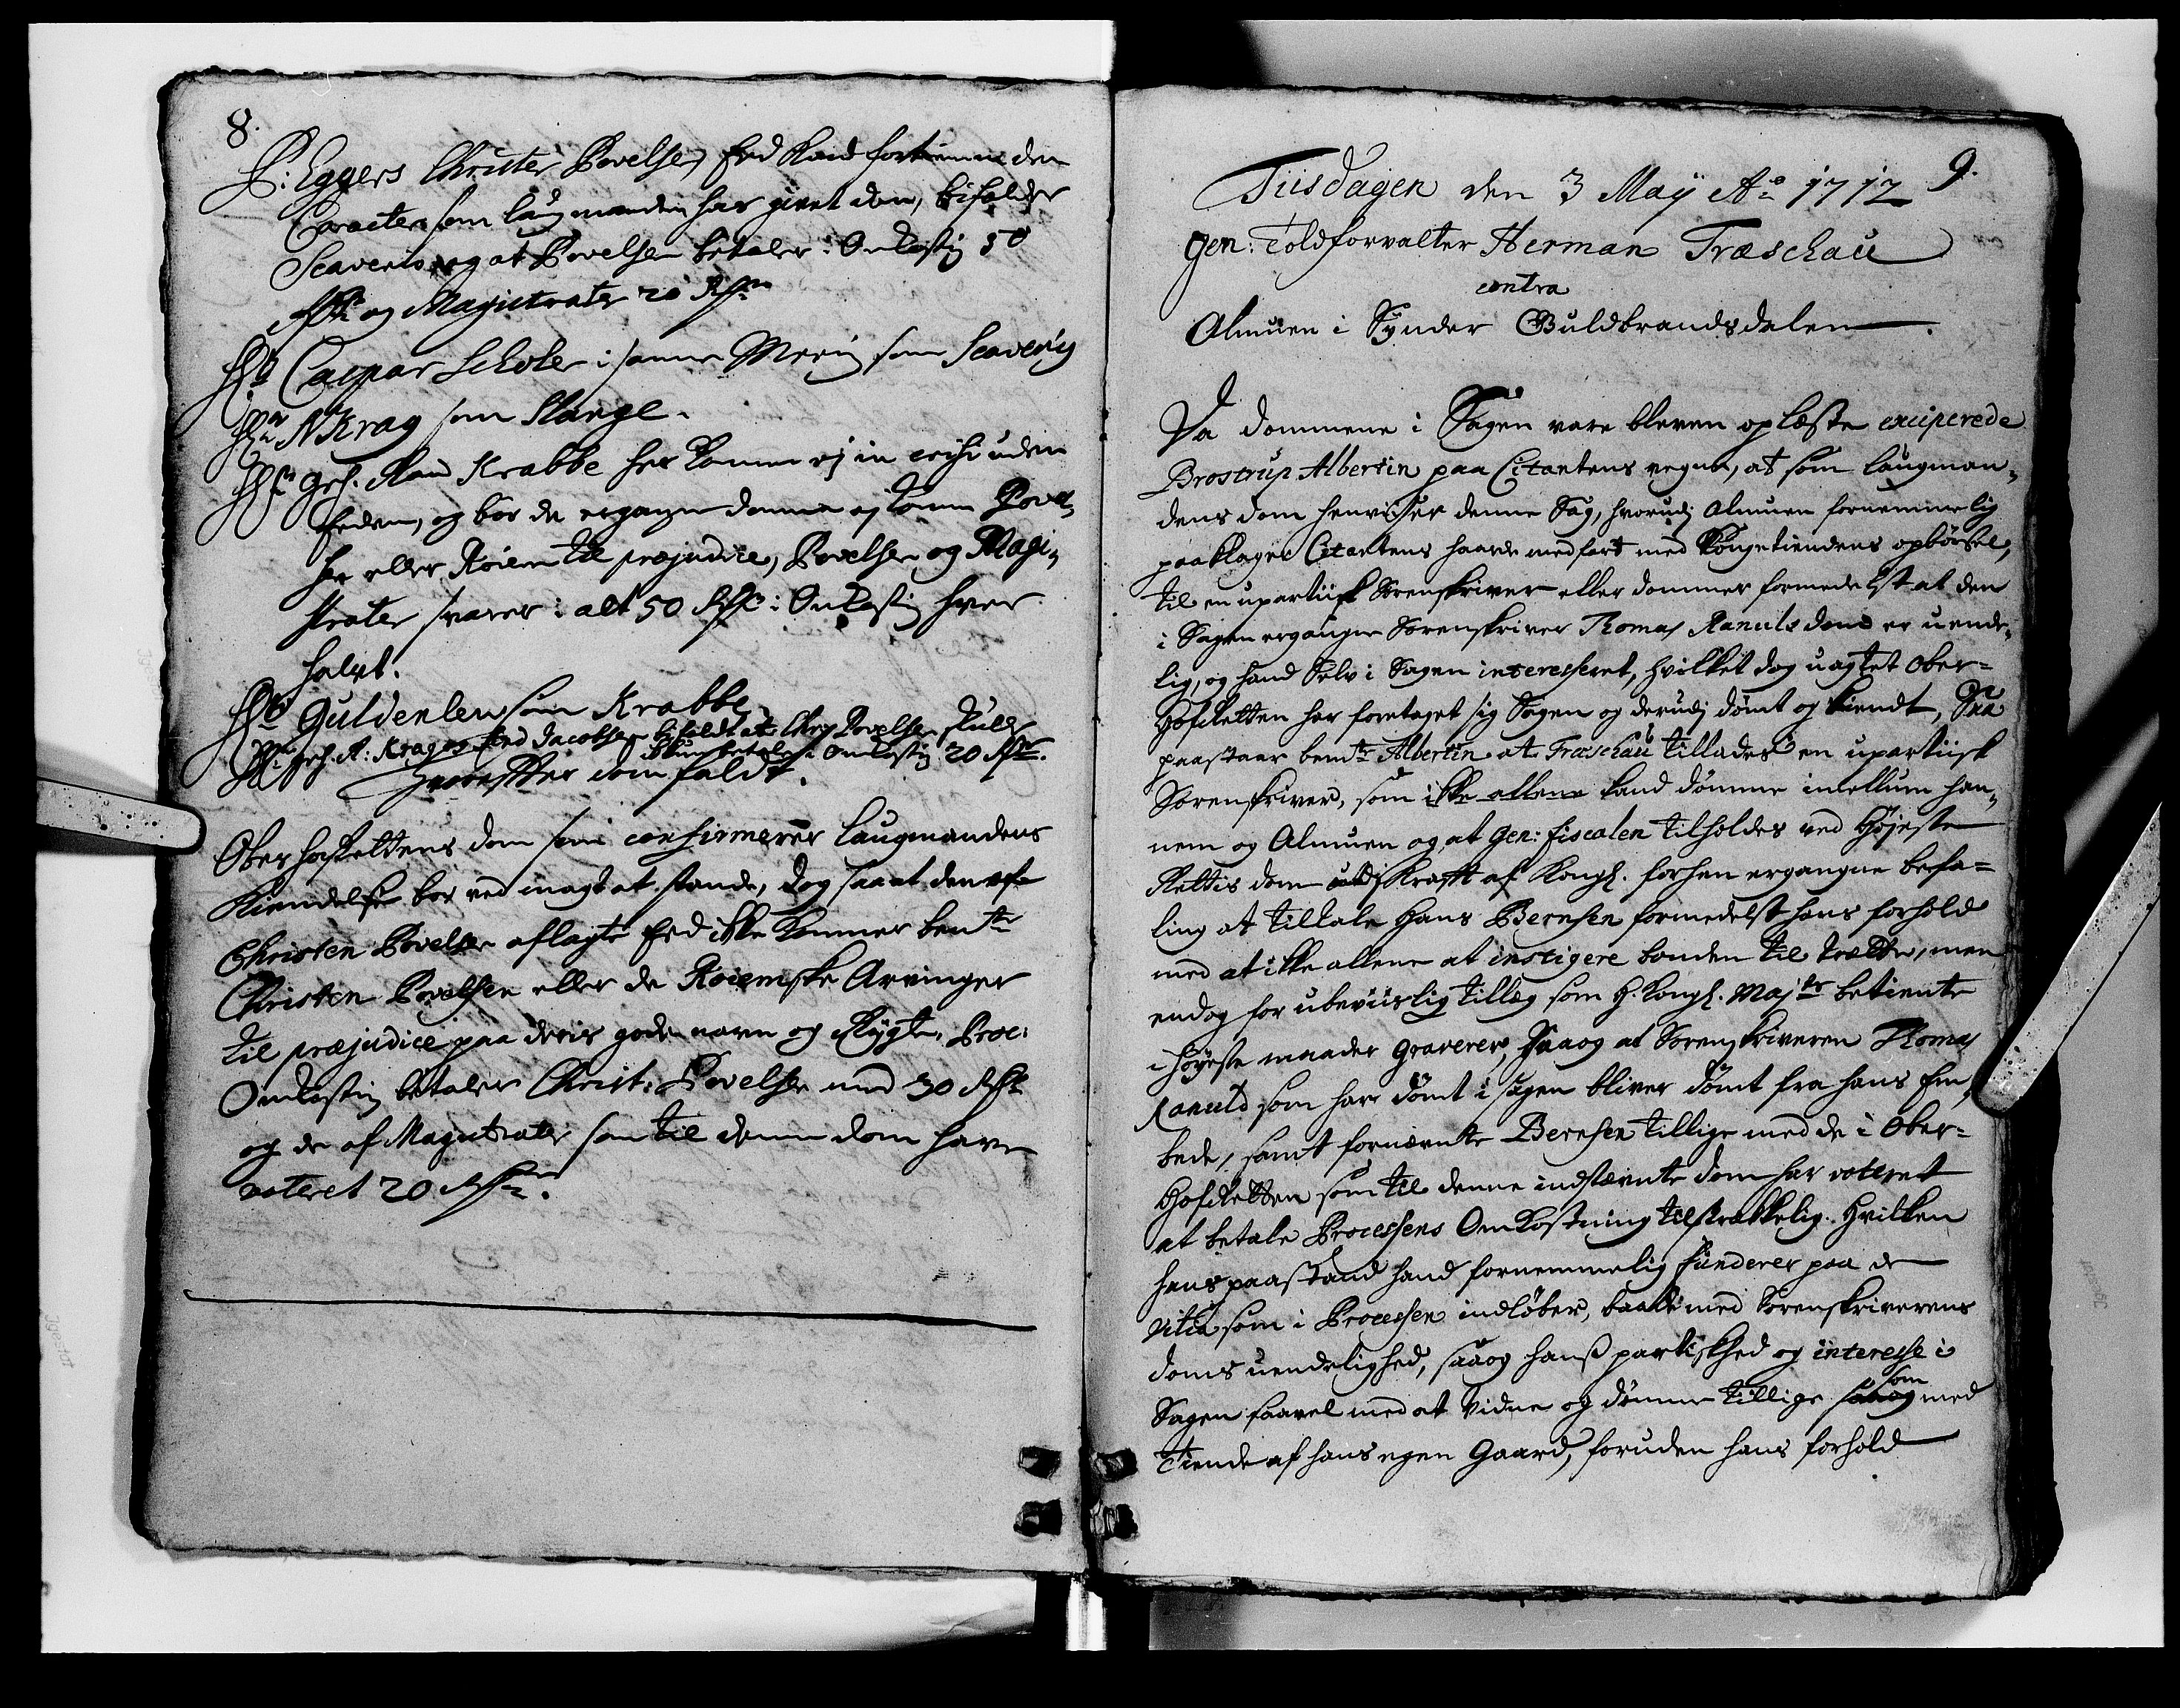 8.
P: Eggers Christen Povelsen Eed kand fortienne den
Caracter som laugmanden har givet den, bifalder
Scavenius og at Povelsen betaler i Omkostning 50
Rdr og Magistraten 20 Rdr
Hr Caspar Schøler i samme Mening som Scavenius
Hr N Krag som Slange.
Hr Geh. Raad Krabbe her kommer ej in crisi uden
Eeden, og bør de ergangne domme ej komme Povel-
sen eller Roiem til præjudice, Povelsen og Magi-
straten svarer i alt 50 Rdr i Omkostning hver
halvt.
Hr Guldenlew som Krabbe
Hr Geh. R: Krages Eed Jacobsen bifaldt at Chr Povelsen skulde
ikkun betale i Omkostning 20 Rdr.
Hvorefter dom faldt.
Oberhofrettens dom som confirmerer laugmandens
Kiendelse bør ved magt at stande, dog saa at den af
Christen Povelsen aflagte Eed ikke kommer bemte
Christen Povelsen eller de Roiemske Arvinger
til præjudice paa deris gode navn og Rygte, Proc:
Omkostning betaler Christ: Povelsen med 30 Rdr
og de af Magistraten som til denne dom haver
voteret 20 Rdr.
9.
Tiisdagen den 3 Maij Ao 1712
Gen: Toldforvalter Herman Træschau
contra
Almuen i Synder Guldbrandsdalen.
Da dommene i Sagen vare bleven oplæste exciperede
Brostrup Albertin paa Citantens vegne, at som laugman-
dens dom henviiser denne Sag, hvorudj Almuen fornemmelig
paaklager Citantens haarde medfart med Kongetiendens opbørsel,
til en upartiisk Sorenskriver eller dommer formedelst at den
i Sagen ergangne Sorenskriver Thomas Ranulds dom er uende-
lig, og hand Selv i Sagen interesseret, hvilket dog uagtet Ober-
Hofretten har foretaget sig Sagen og derudj dømt og kiendt, Saa
paastaar bemte Albertin at Træschau tillades en upartiisk
Sorenskriver, som ikke allene kand dømme imellum han-
nem og Almuen og, at Gen: fiscalen tilholdes ved Højeste
Rettis dom udj Krafft af Kongl. forhen ergangne befa-
ling at tiltale Hans Bernsen formedelst hans forhold
med at ikke allene at instigere bonden til trætte, men
endog for ubeviislig tillæg som H. Kongl. Majts betiente
i højeste maader graverer, Saa og at Sorenskriveren Thomas
Ranuld som har dømt i sagen bliver dømt fra hans Em-
bede, samt fornævnte Bernsen tillige med de i Ober-
Hofretten som til denne indstævnte dom har voteret
at betale Processens Omkostning tilstrækkelig. Hvilken
hans paastand hand fornemmelig funderer paa de
vitia som i Processen indløber, baade med Sorenskriverens
doms uendelighed, saa og hans partiskhed og interesse i
Sagen saavel med at vidne og dømme tillige som med
Tiende af hans egen Gaard, foruden hans forhold